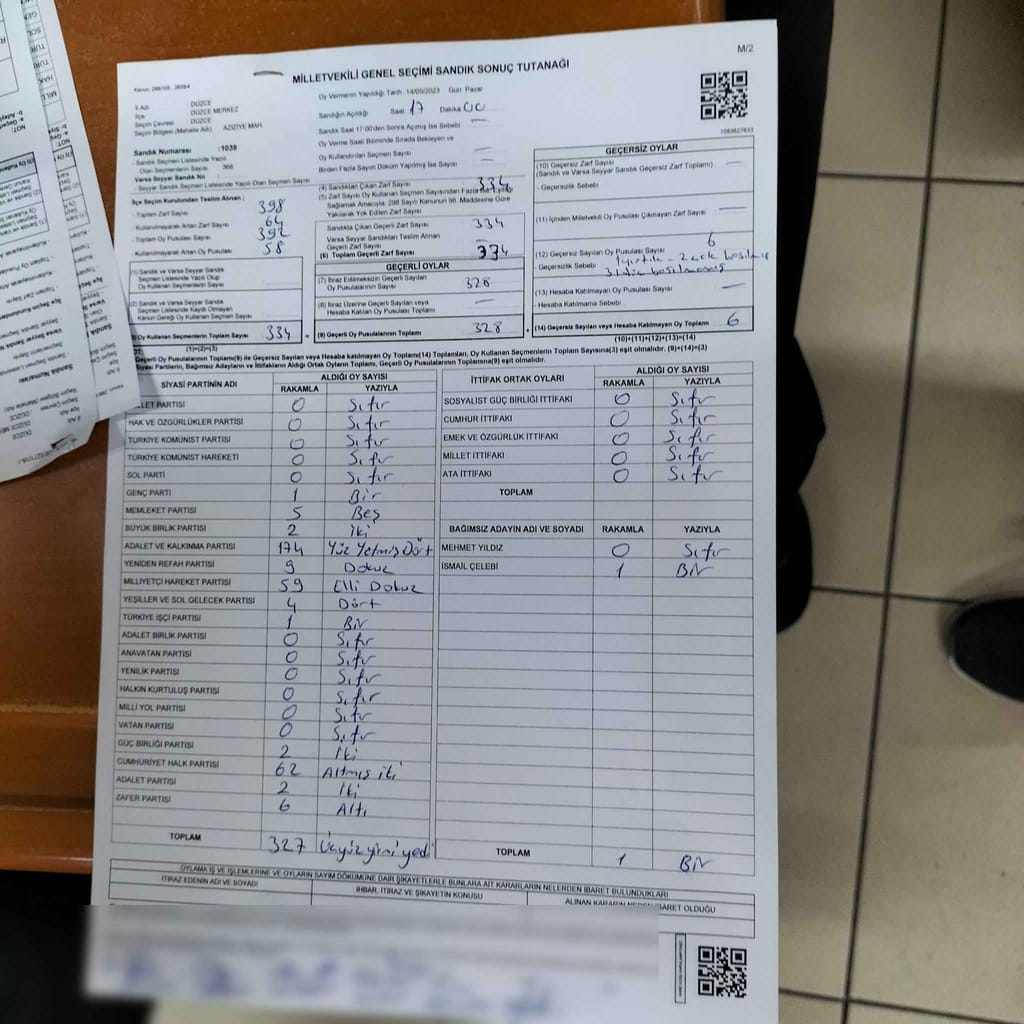 M/2
Kanun: 298/105 , 2839/4
MİLLETVEKİLİ GENEL SEÇİMİ SANDIK SONUÇ TUTANAĞI
1083627833
İl Adı DÜZCE
İlçe DÜZCE MERKEZ
Seçim Çevresi DÜZCE
Seçim Bölgesi (Mahalle Adı) AZİZİYE MAH
Sandık Numarası :1039
- Sandık Seçmen Listesinde Yazılı
Olan Seçmenlerin Sayısı 368
Varsa Seyyar Sandık No :
- Seyyar Sandık Seçmen Listesinde Yazılı Olan Seçmen Sayısı
Oy Vermenin Yapıldığı Tarih :14/05/2023 Gün: Pazar
Sandığın Açıldığı Saat 17 Dakika 00
Sandık Saat 17.00'den Sonra Açılmış İse Sebebi —
Oy Verme Saati Bitiminde Sırada Bekleyen ve
Oy Kullandırılan Seçmen Sayısı —
Birden Fazla Sayım Döküm Yapılmış İse Sayısı —
İlçe Seçim Kurulundan Teslim Alınan :
- Toplam Zarf Sayısı 398
- Kullanılmayarak Artan Zarf Sayısı 64
- Toplam Oy Pusulası Sayısı 392
- Kullanılmayarak Artan Oy Pusulası 58
(1) Sandık ve Varsa Seyyar Sandık
Seçmen Listesinde Yazılı Olup
Oy Kullanan Seçmenlerin Sayısı
(2) Sandık ve Varsa Seyyar Sandık
Seçmen Listesinde Kaydı Olmayan
Kanun Gereği Oy Kullanan Seçmen Sayısı
Oy Kullanan Seçmenlerin Toplam Sayısı 334
(1)+(2)=(3)
(4) Sandıktan Çıkan Zarf Sayısı 334
(5) Zarf Sayısı Oy Kullanan Seçmen Sayısından Fazla İse Eşitliği
Sağlamak Amacıyla, 298 Sayılı Kanunun 98. Maddesine Göre
Yakılarak Yok Edilen Zarf Sayısı
Sandıkta Çıkan Geçerli Zarf Sayısı 334
Varsa Seyyar Sandıktan Teslim Alınan
Geçerli Zarf Sayısı —
(6) Toplam Geçerli Zarf Sayısı 334
GEÇERLİ OYLAR
(7) İtiraz Edilmeksizin Geçerli Sayılan
Oy Pusulalarının Toplamı 328
(8) İtiraz Üzerine Geçerli Sayılan veya
Hesaba Katılan Oy Pusulaları Toplamı —
(9) Geçerli Oy Pusulalarının Toplamı 328
GEÇERSİZ OYLAR
(10) Geçersiz Zarf Sayısı —
(Sandık ve Varsa Seyyar Sandık Geçersiz Zarf Toplamı)
- Geçersizlik Sebebi
(11) İçinden Milletvekili Oy Pusulası Çıkmayan Zarf Sayısı —
(12) Geçersiz Sayılan Oy Pusulası Sayısı 6
- Geçersizlik Sebebi 1 yırtık - 2 çok basılmış
basılmamış
(13) Hesaba Katılmayan Oy Pusulası Sayısı —
- Hesaba Katılmama Sebebi
(14) Geçersiz Sayılan veya Hesaba Katılmayan Oy Toplamı 6
(10)+(11)+(12)+(13)=(14)
Geçerli Oy Pusulalarının Toplamı(9) ile Geçersiz Sayılan veya Hesaba katılmayan Oy Toplam(14) Toplamları, Oy Kullanan Seçmenlerin Toplam Sayısına(3) eşit olmalıdır. (9)+(14)=(3)
Siyasi Partilerin, Bağımsız Adayların ve İttifakların Aldığı Ortak Oyların Toplamı, Geçerli Oy Pusulalarının Toplamına(9) eşit olmalıdır.
SİYASİ PARTİNİN ADI ALDIĞI OY SAYISI
RAKAMLA YAZIYLA
LET PARTİSİ 0 Sıfır
HAK VE ÖZGÜRLÜKLER PARTİSİ 0 Sıfır
TÜRKİYE KOMÜNİST PARTİSİ 0 Sıfır
TÜRKİYE KOMÜNİST HAREKETİ 0 Sıfır
SOL PARTİ 0 Sıfır
GENÇ PARTİ 1 Bir
MEMLEKET PARTİSİ 5 Beş
BÜYÜK BİRLİK PARTİSİ 2 İki
ADALET VE KALKINMA PARTİSİ 174 Yüz Yetmiş Dört
YENİDEN REFAH PARTİSİ 9 Dokuz
MİLLİYETÇİ HAREKET PARTİSİ 59 Elli Dokuz
YEŞİLLER VE SOL GELECEK PARTİSİ 4 Dört
TÜRKİYE İŞÇİ PARTİSİ 1 Bir
ADALET BİRLİK PARTİSİ 0 Sıfır
ANAVATAN PARTİSİ 0 Sıfır
YENİLİK PARTİSİ 0 Sıfır
HALKIN KURTULUŞ PARTİSİ 0 Sıfır
MİLLİ YOL PARTİSİ 0 Sıfır
VATAN PARTİSİ 0 Sıfır
GÜÇ BİRLİĞİ PARTİSİ 2 İki
CUMHURİYET HALK PARTİSİ 62 Altmış iki
ADALET PARTİSİ 2 İki
ZAFER PARTİSİ 6 Altı
TOPLAM 327 Üçyüzyirmiyedi
İTTİFAK ORTAK OYLARI ALDIĞI OY SAYISI
RAKAMLA YAZIYLA
SOSYALİST GÜÇ BİRLİĞİ İTTİFAKI 0 Sıfır
CUMHUR İTTİFAKI 0 Sıfır
EMEK VE ÖZGÜRLÜK İTTİFAKI 0 Sıfır
MİLLET İTTİFAKI 0 Sıfır
ATA İTTİFAKI 0 Sıfır
TOPLAM
BAĞIMSIZ ADAYIN ADI VE SOYADI RAKAMLA YAZIYLA
MEHMET YILDIZ 0 Sıfır
İSMAİL ÇELEBİ 1 Bir
TOPLAM 1 Bir
OYLAMA İŞ VE İŞLEMLERİNE VE OYLARIN SAYIM DÖKÜMÜNE DAİR ŞİKAYETLERLE BUNLARA AİT KARARLARIN NELERDEN İBARET BULUNDUKLARI
İTİRAZ EDENİN ADI VE SOYADI
İHBAR, İTİRAZ VE ŞİKAYETİN KONUSU
ALINAN KARARIN NEDEN İBARET OLDUĞU